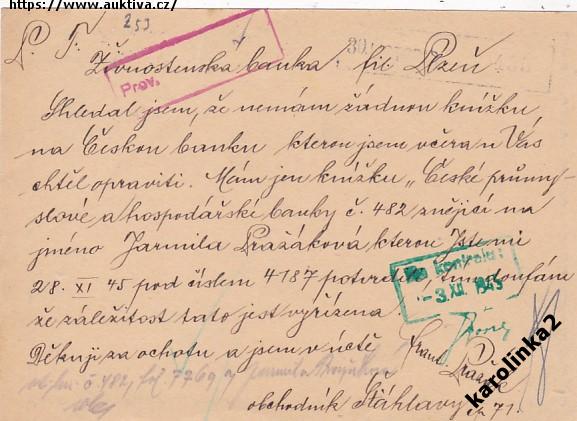 https://www.auktiva.cz/
253
P. T.
Živnostenská banka fil Plzeň
Prov.
Shledal jsem, že nemám žádnou knížku
na Českou banku kterou jsem včera u Vás
chtěl opraviti. Mám jen knížku „České průmy-
slové a hospodářské banky č. 482 znějící na
jméno Jarmila Pražáková kterou jste mi
28. XI 45 pod číslem 4187 potvrdili, tak doufám
že záležitost tato jest vyřízena.
Pro kontrolu:
-3. XII. 1945
Děkuji za ochotu a jsem v úctě
Frant. Pražák
obchodník Šťáhlavy čp 71.
karolinka2